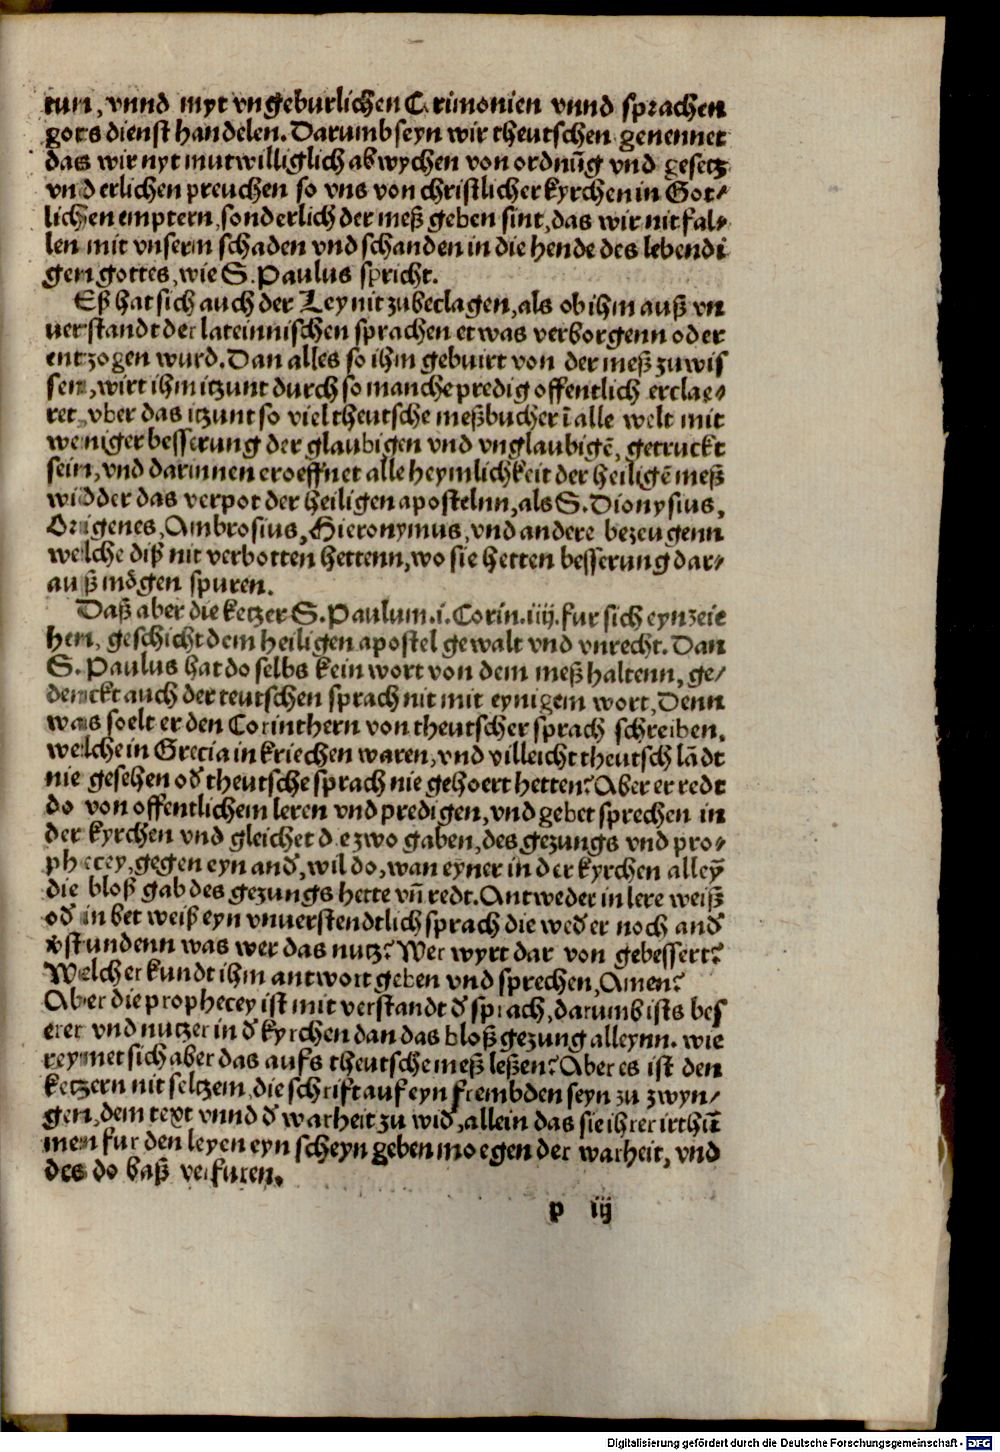 tun, vnnd myt vngeburlichen Cerimonien vnnd sprachen
gots dienst handelen. Darumb seyn wir theutschen genennet
das wir nyt mutwilliglich abwychen von ordnūg vnd gesetz
vnd erlichen preuchen so vns von christlicher kyrchen in Got⸗
lichen emptern, sonderlich der meß geben sint, das wir nit fal⸗
len mit vnserm schaden vnd schanden in die hende des lebendi
gen gottes, wie S. Paulus spricht.
Eß hat sich auch der Ley nit zu beclagen, als ob ihm auß vn
uerstandt der lateinnischen sprachen etwas verborgenn oder
entzogen wurd. Dan alles so ihm gebuirt von der meß zu wis
sen, wirt ihm itzunt durch so manche predig offentlich erclae⸗
ret, vber das itzunt so viel theutsche meßbucher ī alle welt mit
weniger besserung der glaubigen vnd vnglaubigē, getruckt
sein, vnd darinnen eroeffnet alle heymlichkeit der heiligē meß
widder das verpot der heiligen apostelnn, als S. Dionysius,
Origenes, Ambrosius, Hieronymus, vnd andere bezeugenn
welche diß nit verbotten hettenn, wo sie hetten besserung dar⸗
auß mögen spuren.
Daß aber die ketzer S. Paulum .i. Corin. iiij. fur sich eynzeie
hen, geschicht dem heiligen apostel gewalt vnd vnrecht. Dan
S. Paulus hat do selbs kein wort von dem meß haltenn, ge⸗
denckt auch der teutschen sprach nit mit eynigem wort, Denn
was soelt er den Corinthern von theutscher sprach schreiben,
welche in Grecia in kriechen waren, vnd villeicht theutsch lādt
nie gesehen od̛ theutsche sprach nie gehoert hetten? Aber er redt
do von offentlichem leren vnd predigen, vnd gebet sprechen in
der kyrchen vnd gleichet die zwo gaben, des gezungs vnd pro⸗
phecey, gegen eyn and̛, wil do, wan eyner in der kyrchen alleyn̄
die bloß gab des gezungs hette vn̄ redt. Antweder in lere weiß
od̛ in bet weiß eyn vnuerstendtlich sprach die wed̛er noch and̛
v̛stundenn was wer das nutz? Wer wyrt dar von gebessert?
Welcher kundt ihm antwort geben vnd sprechen, Amen?
Aber die prophecey ist mit verstandt d̛ sprach, darumb ists bes
erer vnd nutzer in d̛ kyrchen dan das bloß gezung alleynn. wie
reymet sich aber das aufs theutsche meß leßen? Aber es ist den
ketzern nit seltzem, die schrift auf eyn frembden seyn zu zwyn⸗
gen, dem text vnnd d̛ warheit zu wid̛, allein das sie ihrer irthū
men fur den leyen eyn scheyn geben moegen der warheit, vnd
des do baß verfuren.
p iij
Digitalisierung gefördert durch die Deutsche Forschungsgemeinschaft - DFG